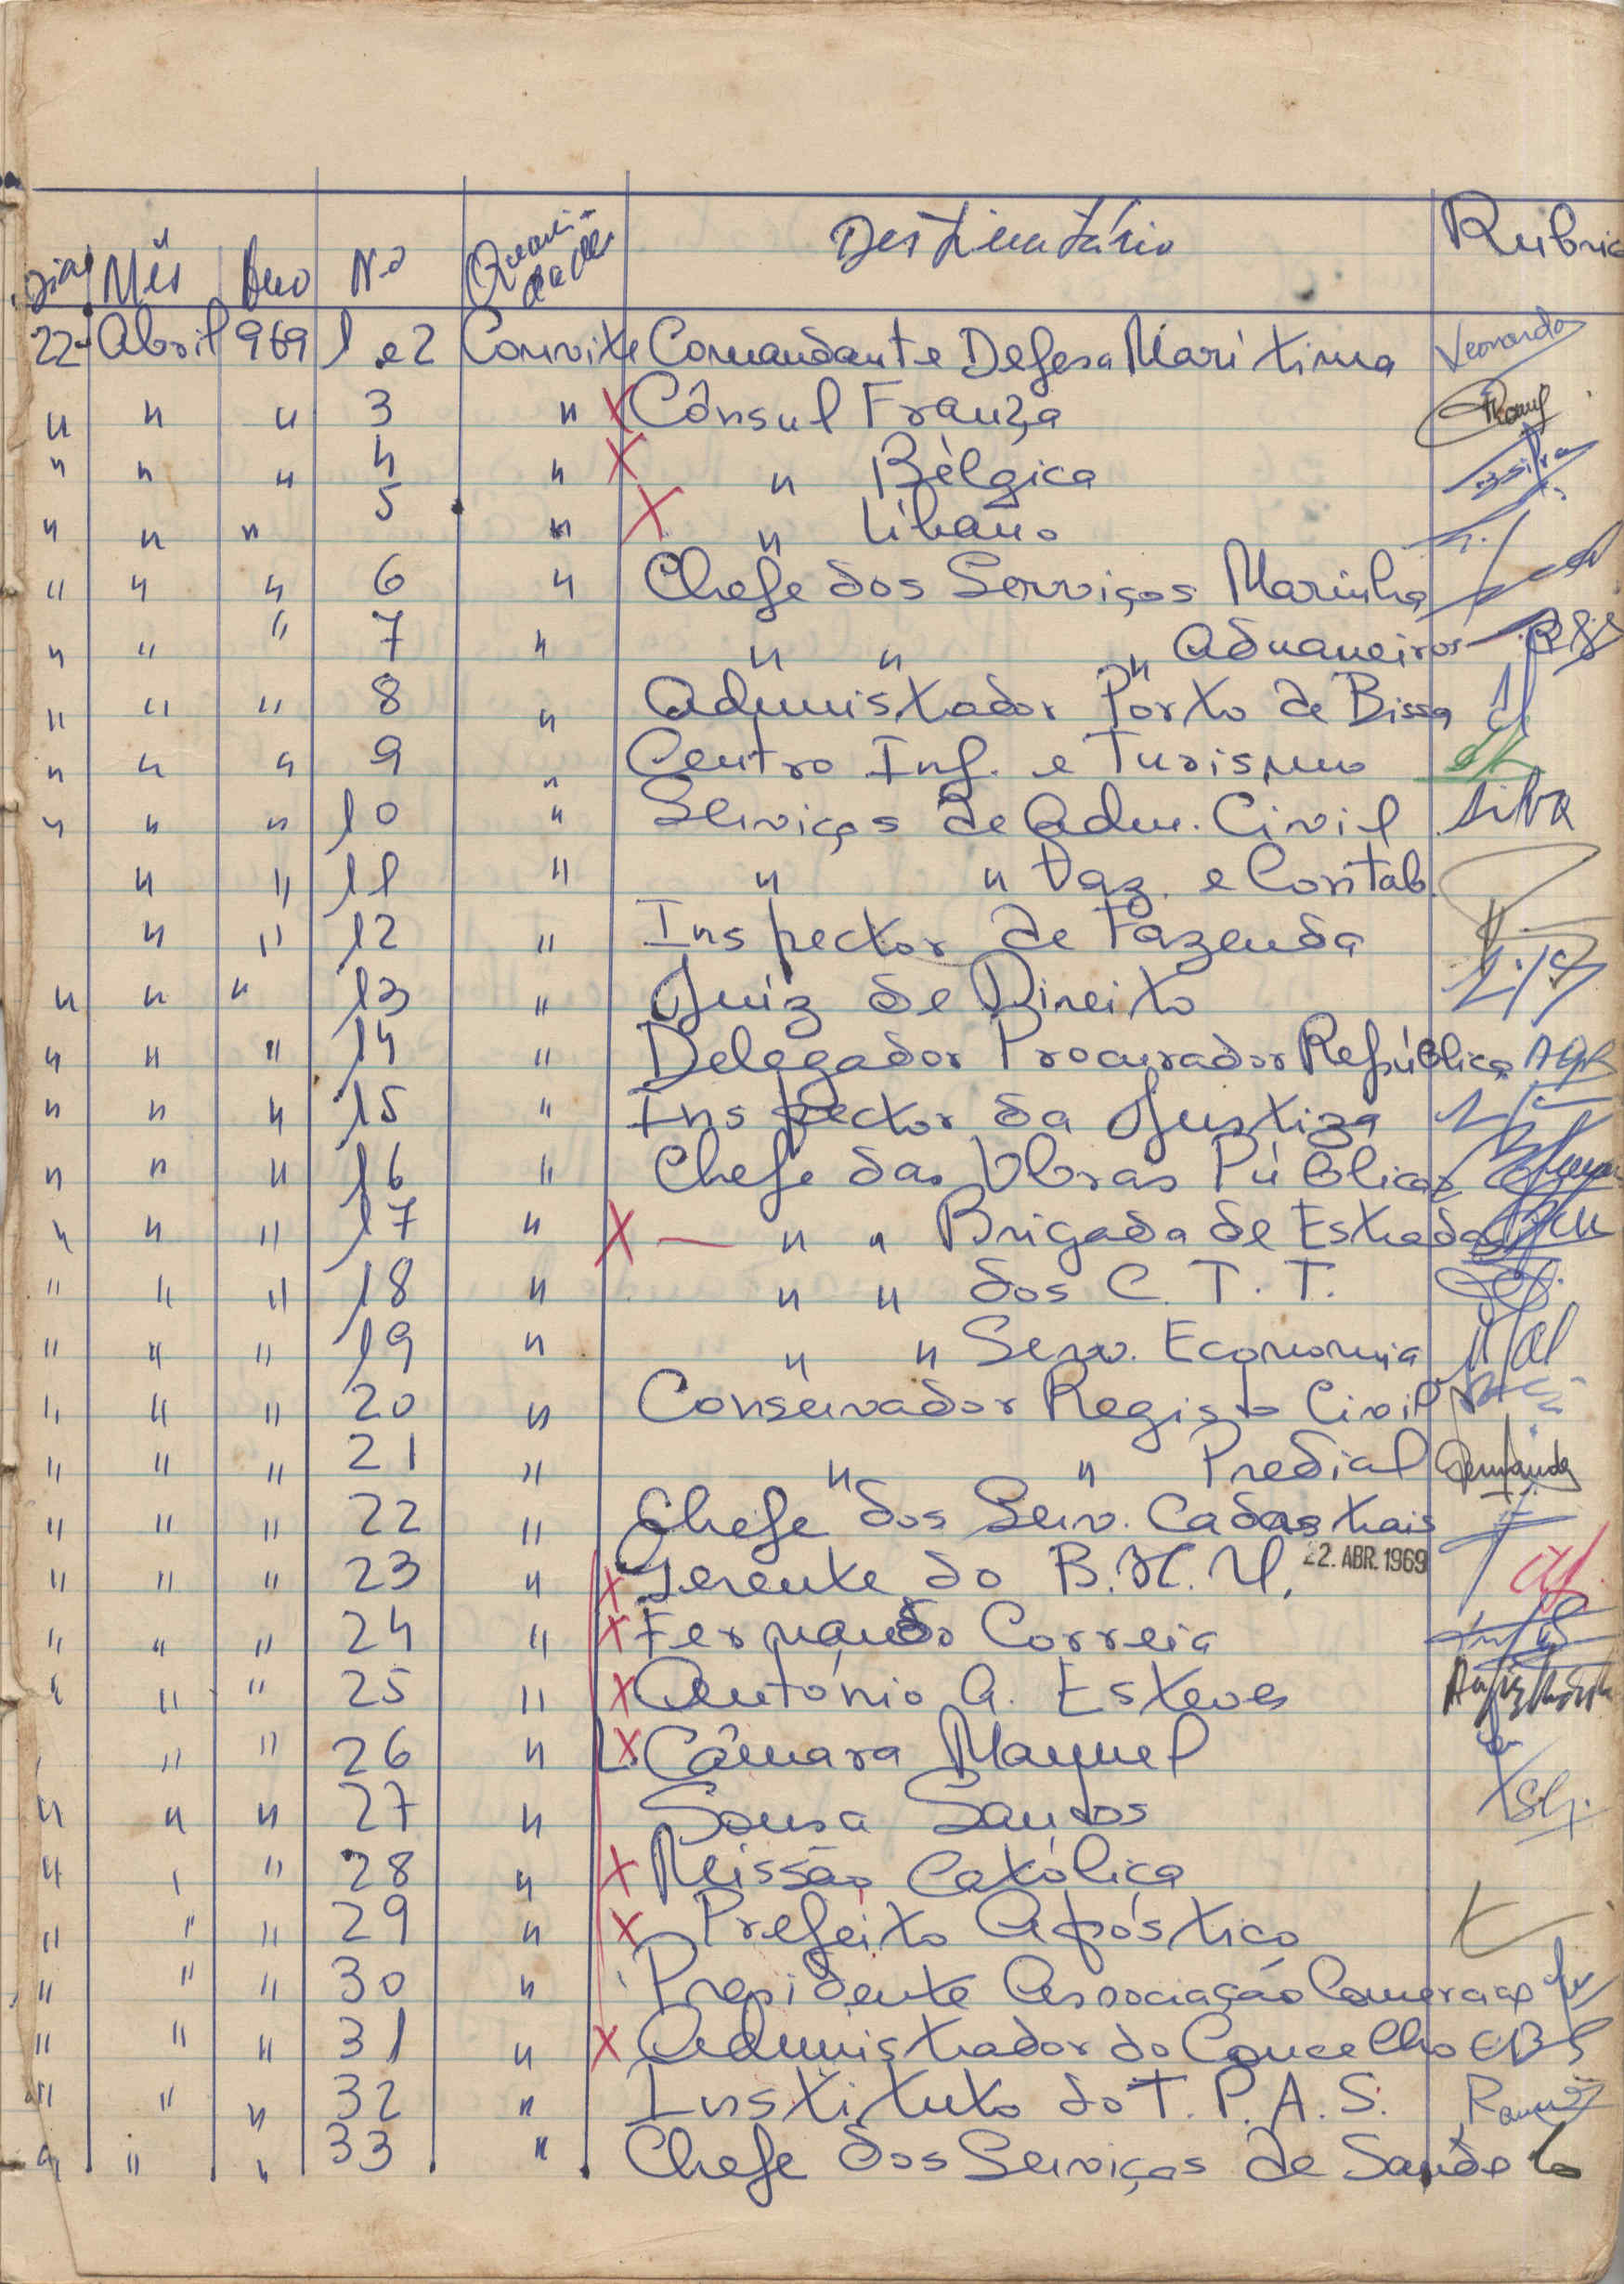 Dia Mês Ano Nº Quantidade Destinatário Rubric
22 Abril 969 1 e 2 Convite Comandante Defesa Marítima Leonardo
" " " 3 " X Cônsul França
" " " 4 " X " Bélgica Silva
" " " 5 " X " Líbano
" " " 6 " Chefe dos Serviços Marinha
" " " 7 " " " " Aduaneiros
" " " 8 " Admistrador Porto de Bissa
" " " 9 " Centro Inf. e Turismo
" " " 10 " Serviços de Adm. Civil Silva
" " 11 " " " Faz. e Contab
" " 12 " Inspector de Fazenda
" " " 13 " Juiz de Direito
" " " 14 " Delegador Procurador República
" " " 15 " Inspector da Justiça
" " " 16 " Chefe das Obras Públicas
" " " 17 " X — " " Brigada de Estrada
" " " 18 " " " dos C. T. T.
" " " 19 " " " Serv. Economia
" " " 20 " Conservador Registo Civil
" " " 21 " " " Predial
" " " 22 " Chefe dos Serv. Cadastrais
" " " 23 " X Gerente do B.N.U. 22. ABR. 1969
" " " 24 " X Fernando Correia
" " " 25 " X António A. Esteves
" " " 26 " X Câmara Manuel
" " " 27 " Sousa Santos
" " " 28 " X Missão Católica
" " " 29 " X Prefeito Apóstico
" " " 30 " Presidente Associação Comercial
" " " 31 " X Admistrador do Concelho
" " " 32 " Instituto do T. P. A. S.
" " " 33 " Chefe dos Serviços de Saúde